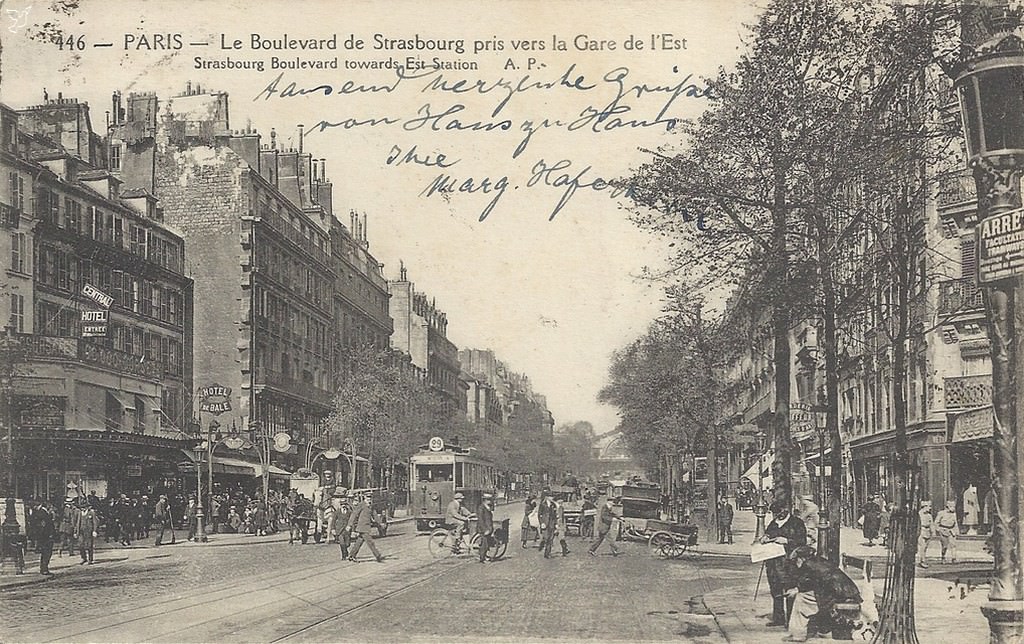 446 — PARIS — Le Boulevard de Strasbourg pris vers la Gare de l'Est
Strasbourg Boulevard towards Est Station A. P.
tausend herzliche Grüße
von Haus zu Haus
Ihre
Marg.
CENTRAL
HOTEL
ENTRÉE
HOTEL
DE BALE
29
ARRET
FACULTATIF